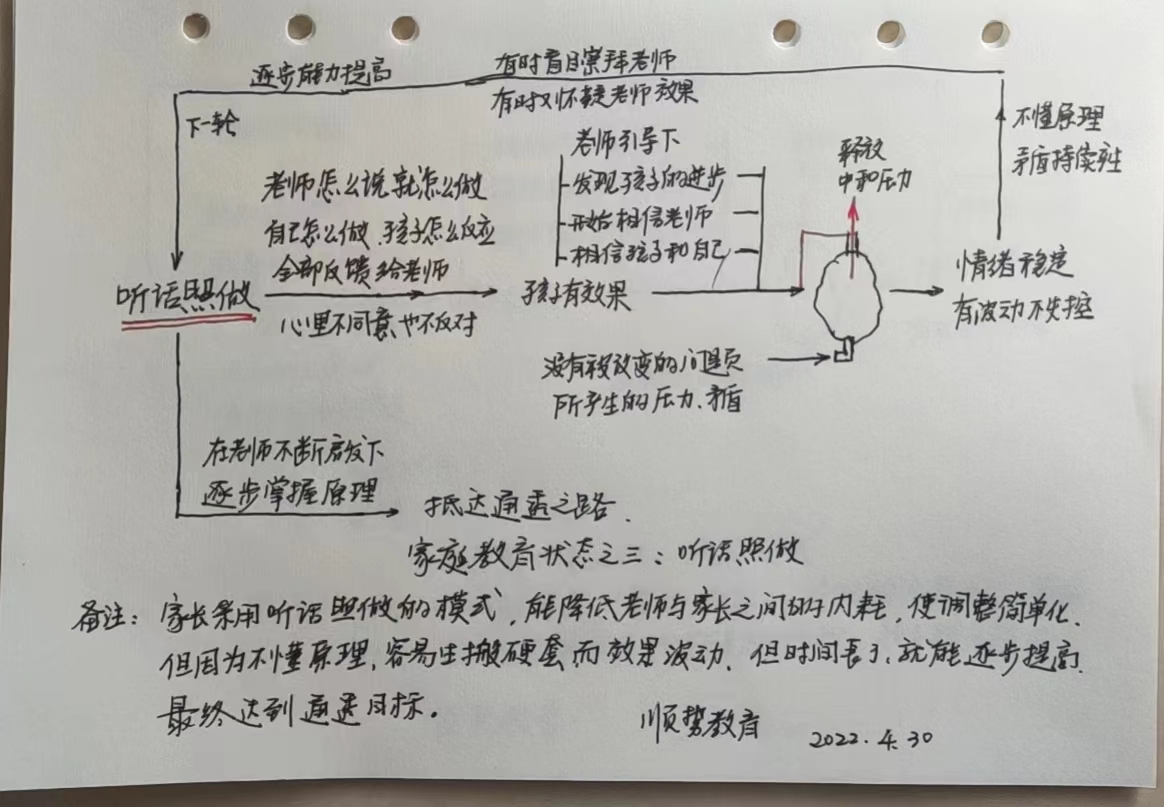 逐步能力提高
有时盲目崇拜老师
有时又怀疑老师效果
下一轮
老师怎么说就怎么做
自己怎么做、孩子怎么反应
全部反馈给老师
心里不同意也不反对
听话照做
老师引导下
发现孩子的进步
开始相信老师
相信孩子和自己
孩子有效果
释放
中和压力
没有被改变的问题
所产生的压力、矛盾
情绪稳定
有波动不失控
不懂原理
矛盾持续性
在老师不断启发下
逐步掌握原理
抵达通透之路.
家庭教育状态之三：听话照做
备注：家长采用听话照做的模式，能降低老师与家长之间的内耗，使调整简单化.
但因为不懂原理，容易生搬硬套而效果波动. 但时间长了，就能逐步提高.
最终达到通透目标。
顺势教育
2022.4.30